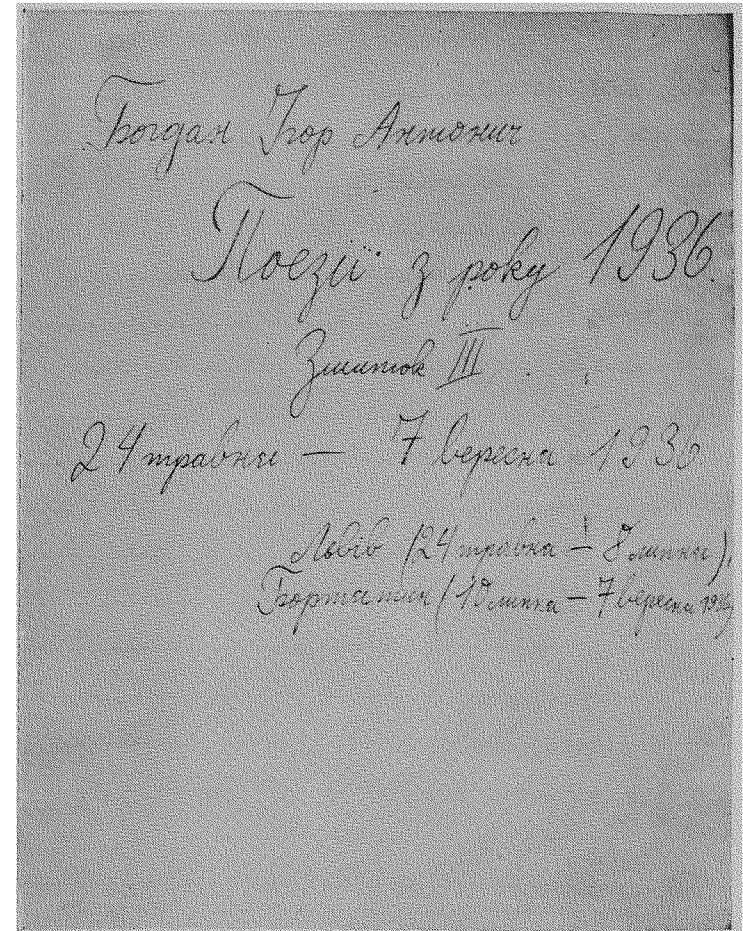 Богдан Ігор Антонич
Поезії з року 1936.
Зшиток III
24 травня — 7 вересня 1936
Львів (24 травня — 8 липня),
Бортятин (10 липня — 7 вересня 1936)